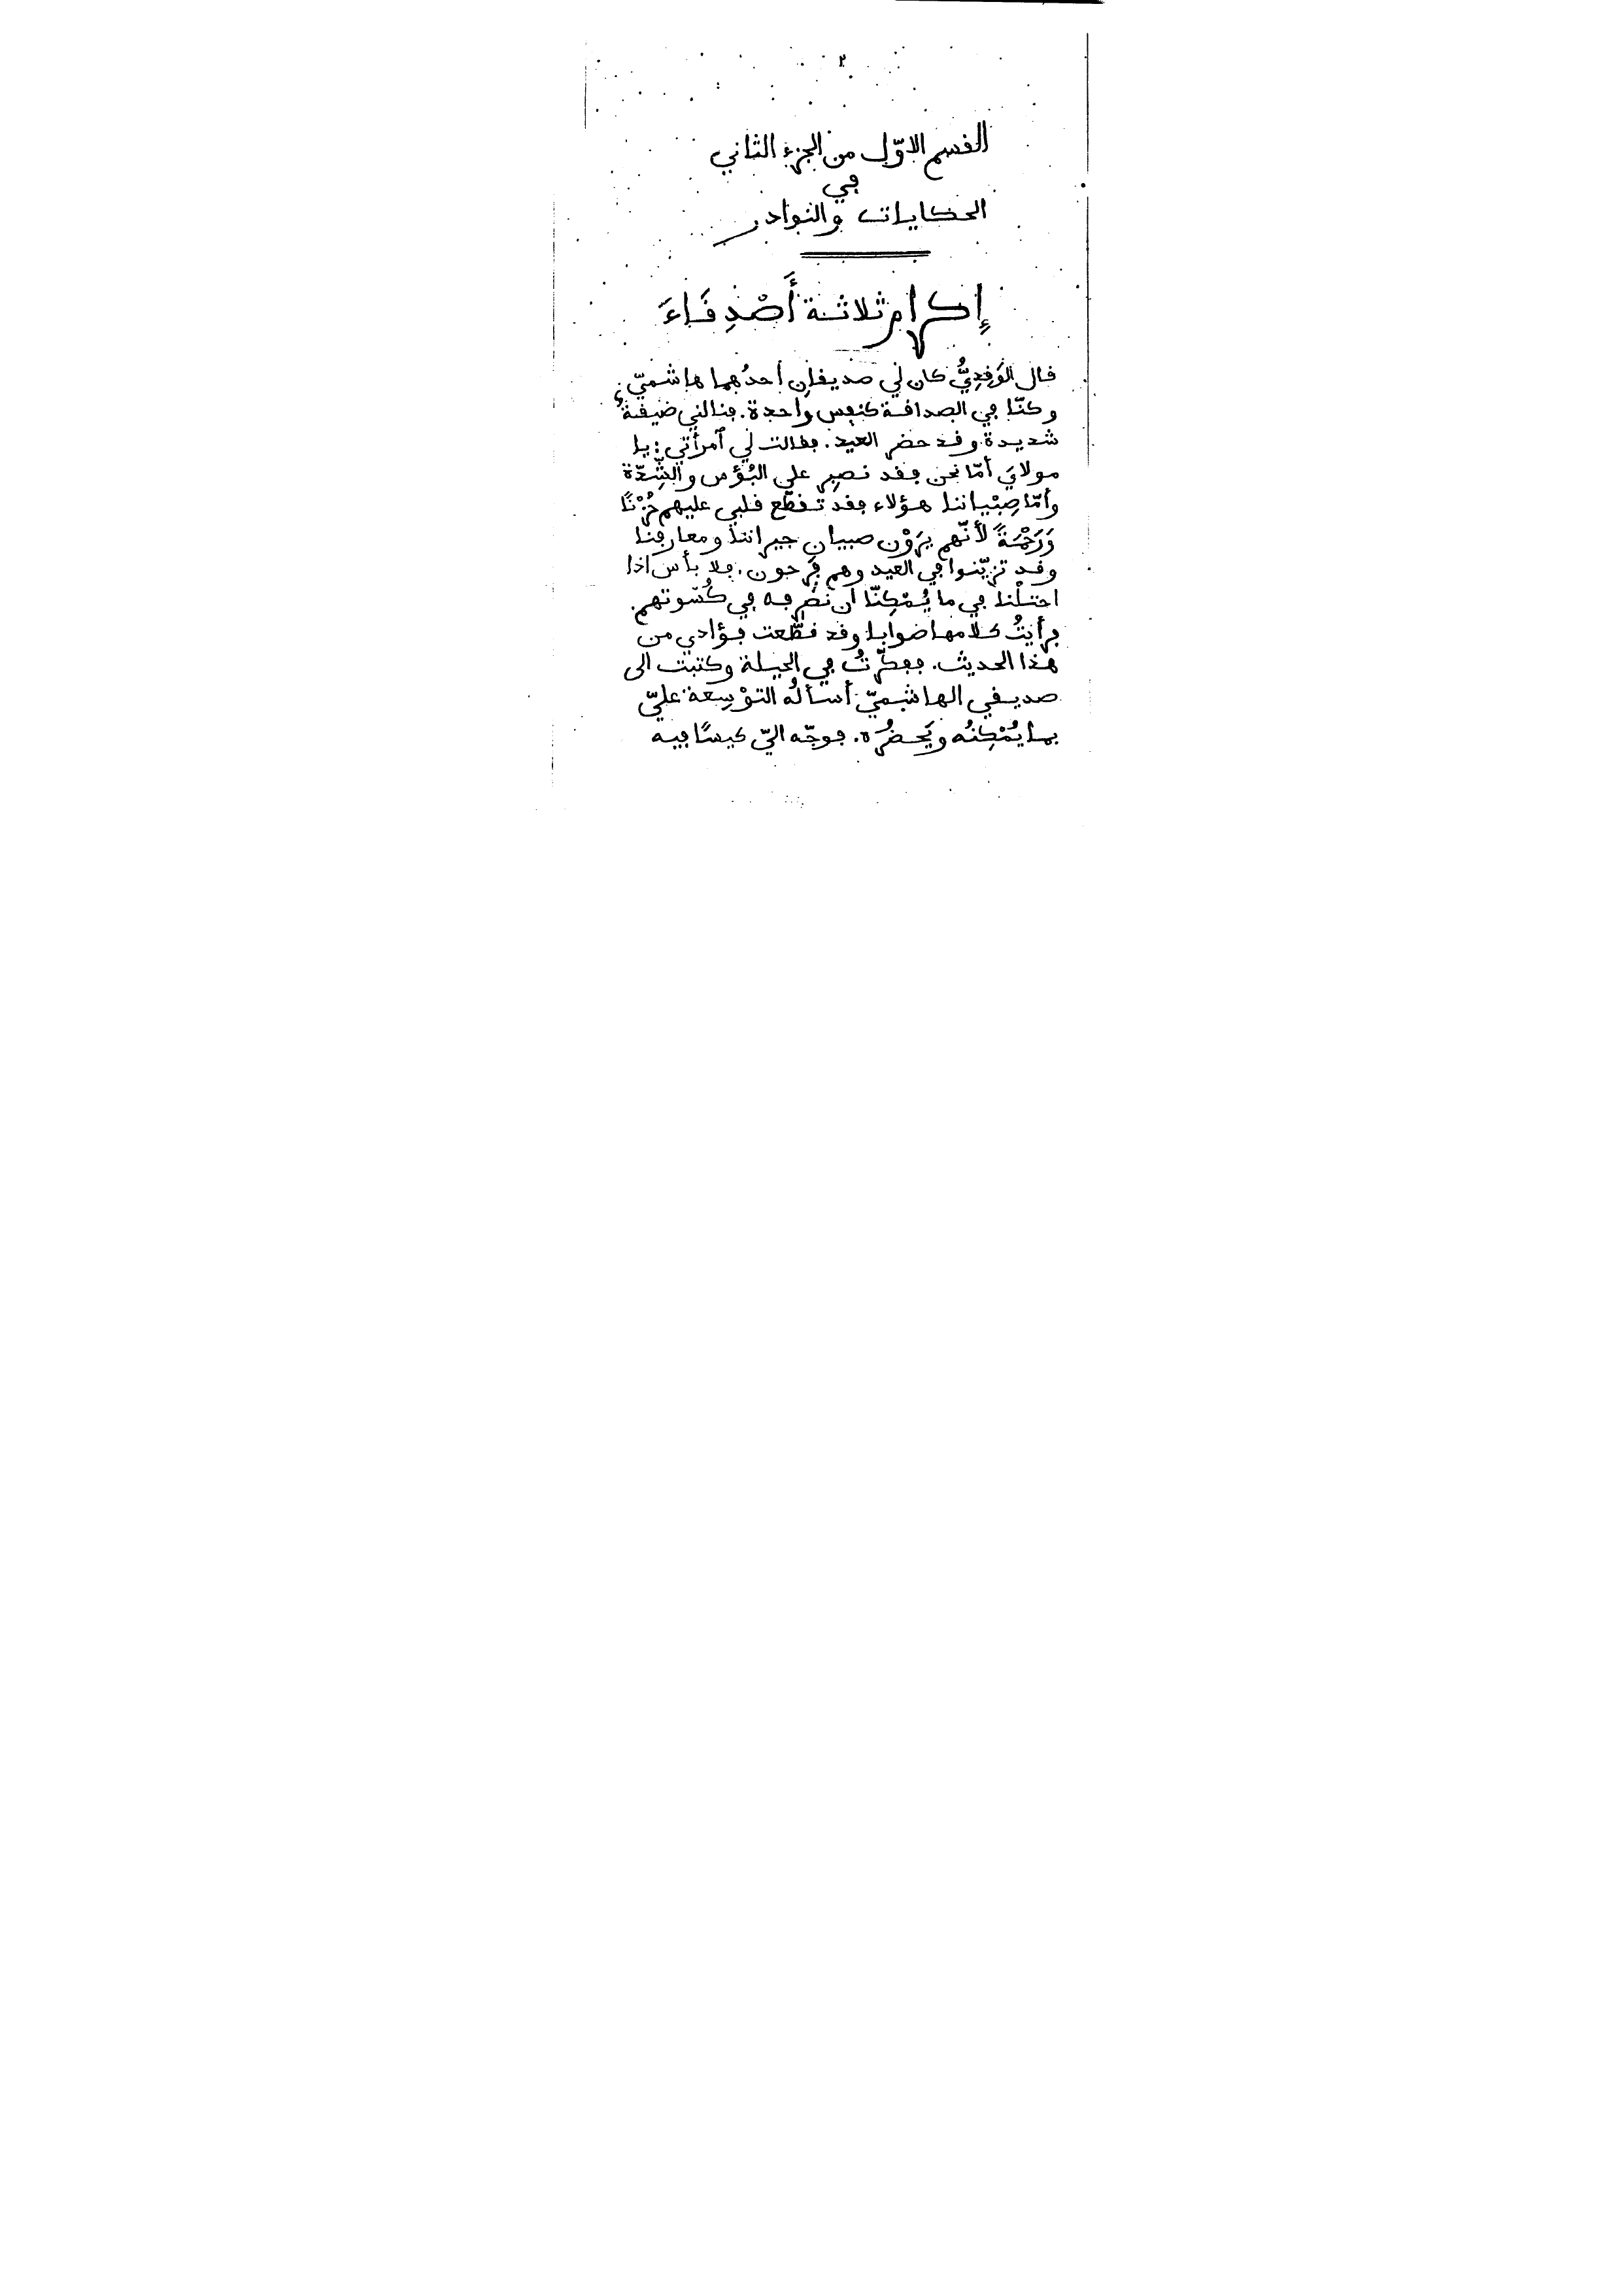 ٢
القسم الاوّل من الجزء الثاني
في
الحكايات والنوادر
إكرام ثلاثة أَصْدِقَاءَ
قال الوَقِدِيُّ كان لي صديقانِ أحدُهما هاشميّ
وكنّا في الصداقة كنفس واحدة. فنالني ضيقةٌ
شديدة وقد حضر العيد. فقالت لي ٱمرأتي: يا
مولايَ أمّا نحن فقد نصبِر على البُؤس والشِّدّة
وأمّا صِبْياننا هؤلاء فقد تقطّع قلبي عليهم حُزْنًا
وَرَحْمَةً لأنّهم يَرَوْن صبيان جيراننا ومعارفنا
وقد تزيّنوا في العيد وهم فَرِحون. فلا بأس اذا
احتلْنا في ما يُمْكِنّا ان نصْرِفه في كُسْوتهم.
فرأيتُ كلامها صوابا وقد قطّعت فؤادي من
هذا الحديث. ففكّرتُ في الحيلة وكتبت الى
صديقي الهاشميّ أسألُه التوْسِعة عليّ
بما يُمْكِنُه ويَحضُرُه. فوجّه اليّ كيسًا فيه